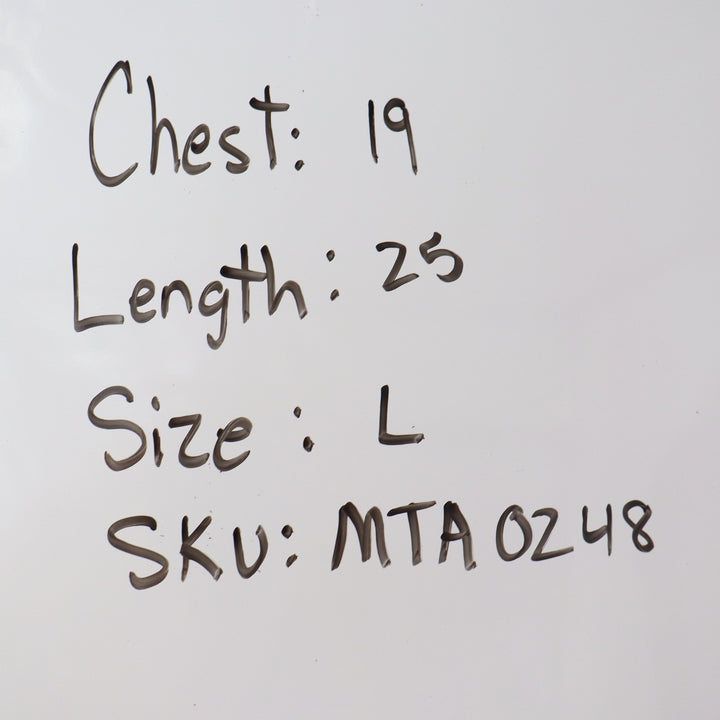 Chest: 19
Length: 25
Size: L
SKU: MTA0248